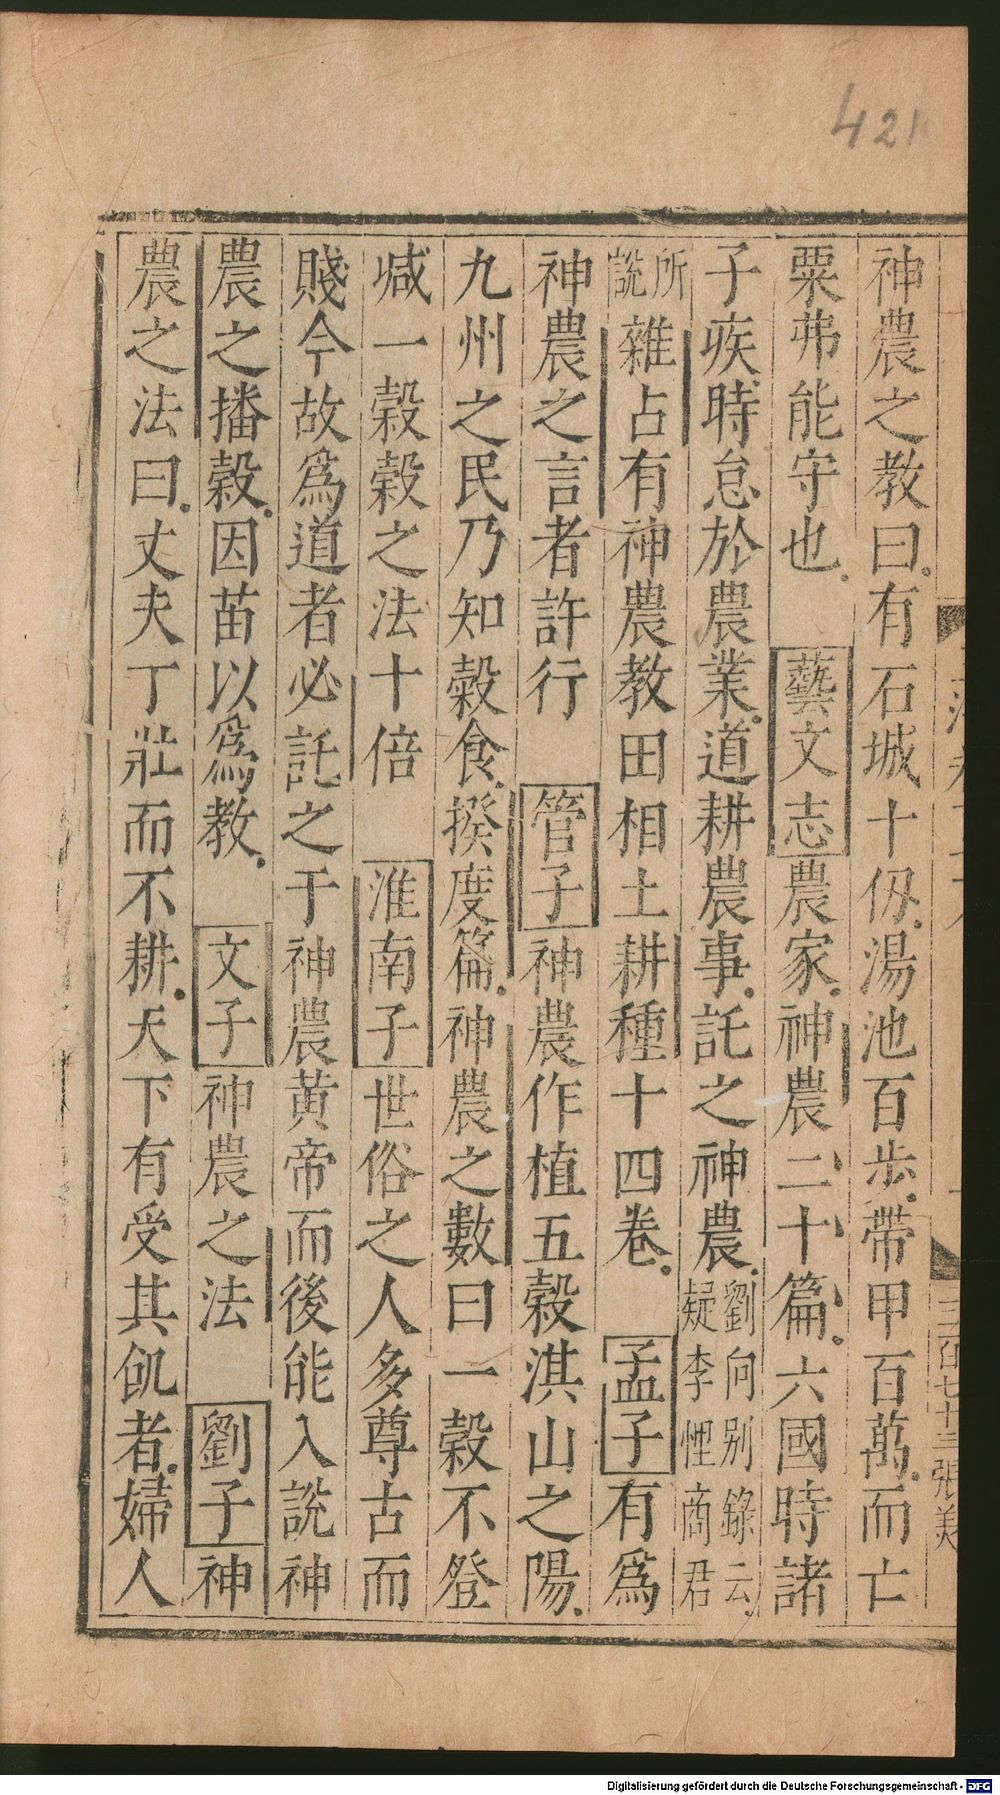 421
神農之教曰有石城十仭湯池百步帶甲百萬而亡
粟弗能守也 藝文志農家神農二十篇六國時諸
子疾時怠於農業道耕農事託之神農劉向別錄云疑李悝商君
所說雜占有神農教田相土耕種十四卷 孟子有爲
神農之言者許行 管子神農作植五穀淇山之陽
九州之民乃知穀食揆度篇神農之數曰一穀不登
減一穀穀之法十倍 淮南子世俗之人多尊古而
賤今故爲道者必託之于神農黃帝而後能入說神
農之播穀因苗以爲教 文子神農之法 劉子神
農之法曰丈夫丁壯而不耕天下有受其飢者婦人
三百七十三張美
Digitalisierung gefördert durch die Deutsche Forschungsgemeinschaft - DFG